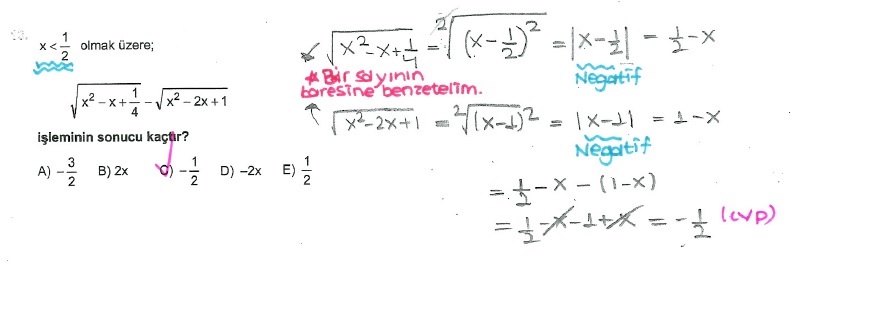 x < 1/2 olmak üzere;
√(x² − x + 1/4) − √(x² − 2x + 1)
işleminin sonucu kaçtır?
A) −3/2 B) 2x C) −1/2 D) −2x E) 1/2
√(x² − x + 1/4) = ²√((x − 1/2)²) = |x − 1/2| = 1/2 − x
Negatif
* Bir sayının
karesine benzetelim.
√(x² − 2x + 1) = ²√((x − 1)²) = |x − 1| = 1 − x
Negatif
= 1/2 − x − (1 − x)
= 1/2 − x − 1 + x = −1/2 (cvp)